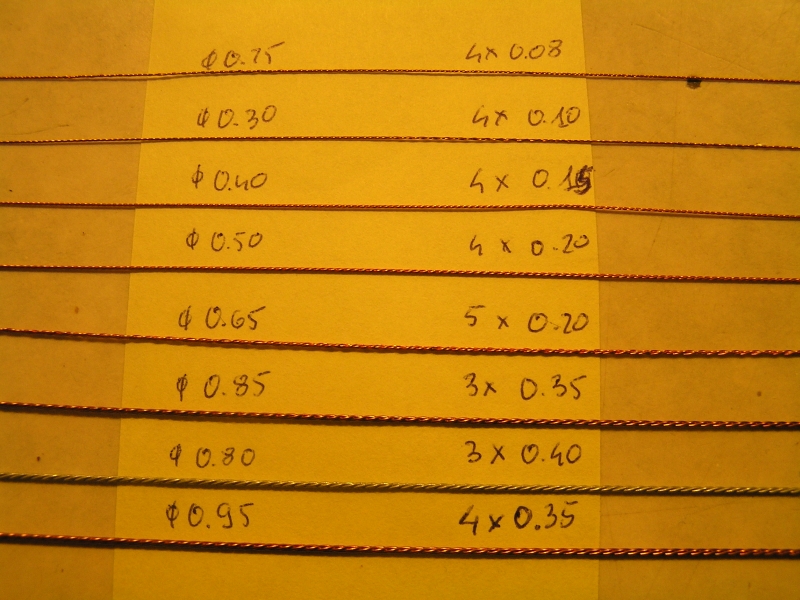 ϕ 0.25 4x 0.08
ϕ 0.30 4x 0.10
ϕ 0.40 4x 0.15
ϕ 0.50 4 x 0.20
ϕ 0.65 5 x 0.20
ϕ 0.85 3x 0.35
ϕ 0.80 3 x 0.40
ϕ 0.95 4 x 0.35